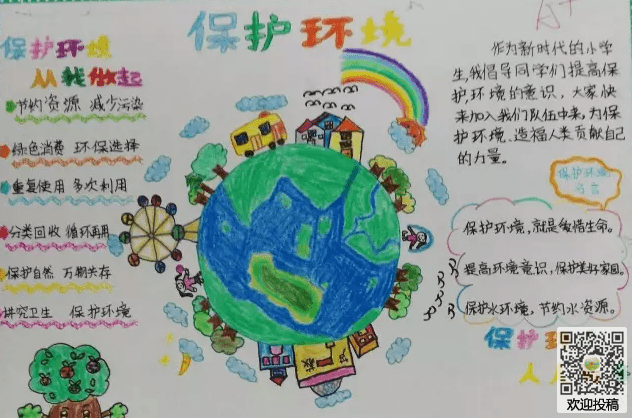 保护环境
A+
保护环境
从我做起
节约资源 减少污染
绿色消费 环保选择
重复使用 多次利用
分类回收 循环再用
保护自然 万物共存
讲究卫生 保护环境
作为新时代的小学
生,我倡导同学们提高保
护环境的意识，大家快
来加入我们队伍中来,为保
护环境、造福人类贡献自己
的力量。
保护环境
保护环境,就是爱惜生命。
提高环境意识,保护美好家园。
保护水环境，节约水资源。
保护环
人人
欢迎投稿